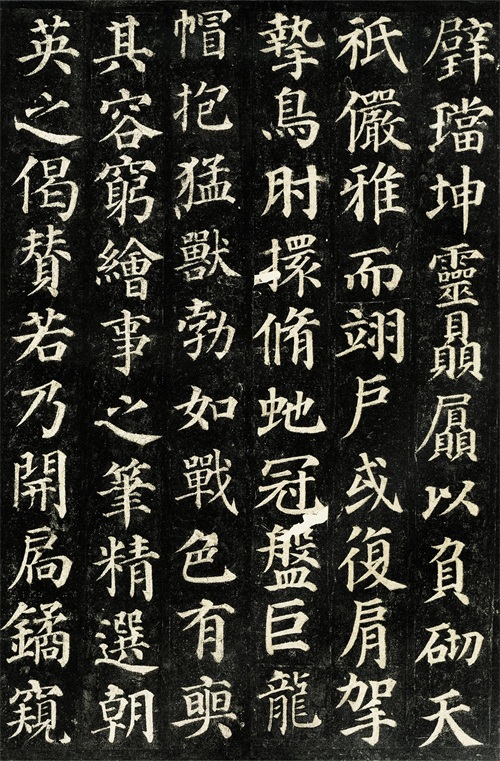 壁璫坤靈贔屭以負砌天
祇儼雅而翊戶或復肩挐
摯鳥肘擐脩虵冠盤巨龍
帽抱猛獸勃如戰色有奭
其容窮繪事之筆精選朝
英之偈贊若乃開扃鐍窺